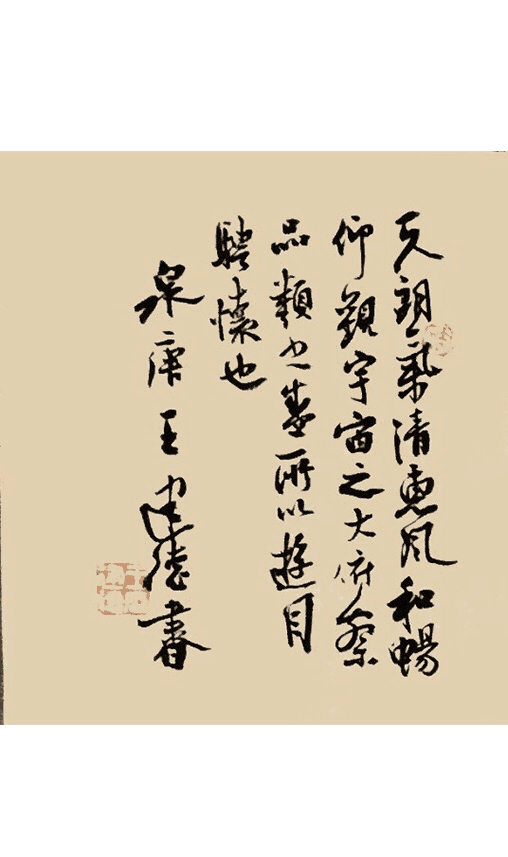 天朗氣清惠風和暢
仰觀宇宙之大俯察
品類之盛所以遊目
騁懷也
泉唐王建德書